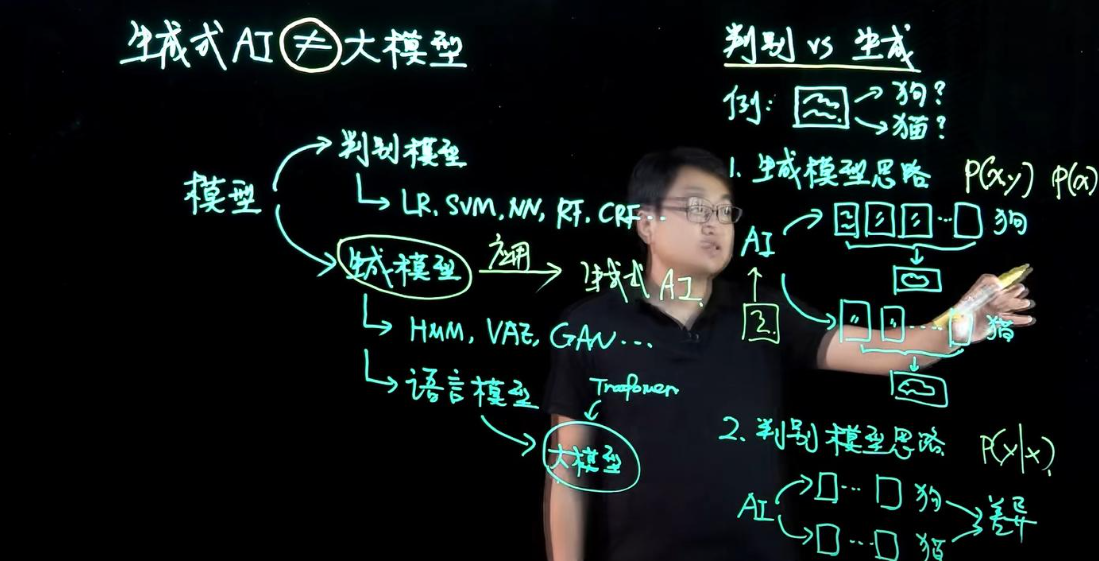 生成式AI≠大模型
模型
判别模型
LR, SVM, NN, RF, CRF...
生成模型
应用
生成式AI
HMM, VAE, GAN...
语言模型
Transformer
大模型
判别 vs 生成
例:
狗?
猫?
1. 生成模型思路 P(x,y) P(x)
AI
... 狗
2.
... 猫
2. 判别模型思路 P(Y|X)
AI
... 狗
... 猫
差异